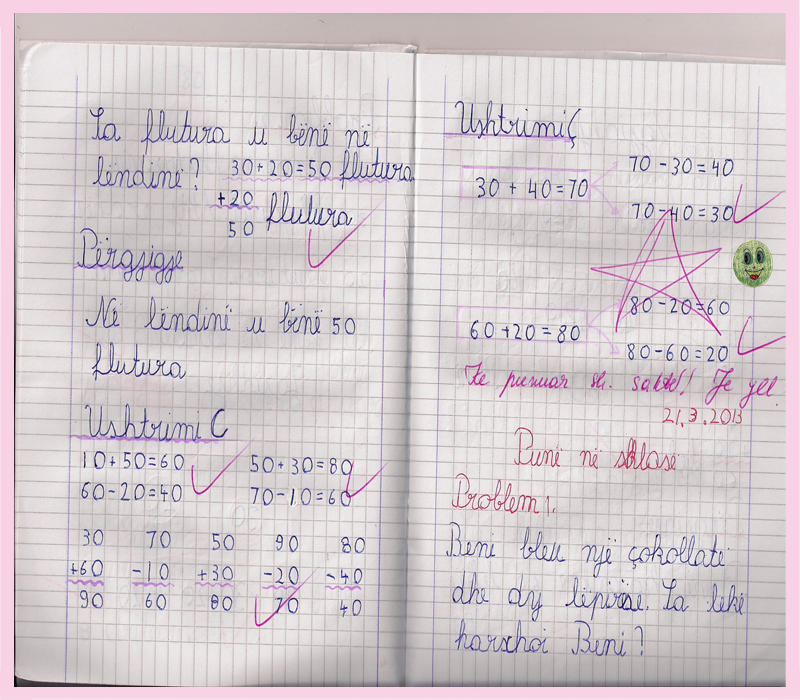 Sa flutura u bënë në
lëndinë? 30+20=50 flutura
+20 flutura
50
Përgjigje
Në lëndinë u bënë 50
flutura
Ushtrimi C
10+50=60 50+30=80
60-20=40 70-10=60
30 70 50 90 80
+60 -10 +30 -20 -40
90 60 80 70 40
Ushtrimi Ç
70-30=40
30+40=70
70-40=30
80-20=60
60+20=80
80-60=20
Ke punuar sh. saktë! Je yll
21.3.2013
Punë në klasë
Problem 1.
Beni bleu një çokollatë
dhe dy lëpirëse. Sa lekë
harxhoi Beni?